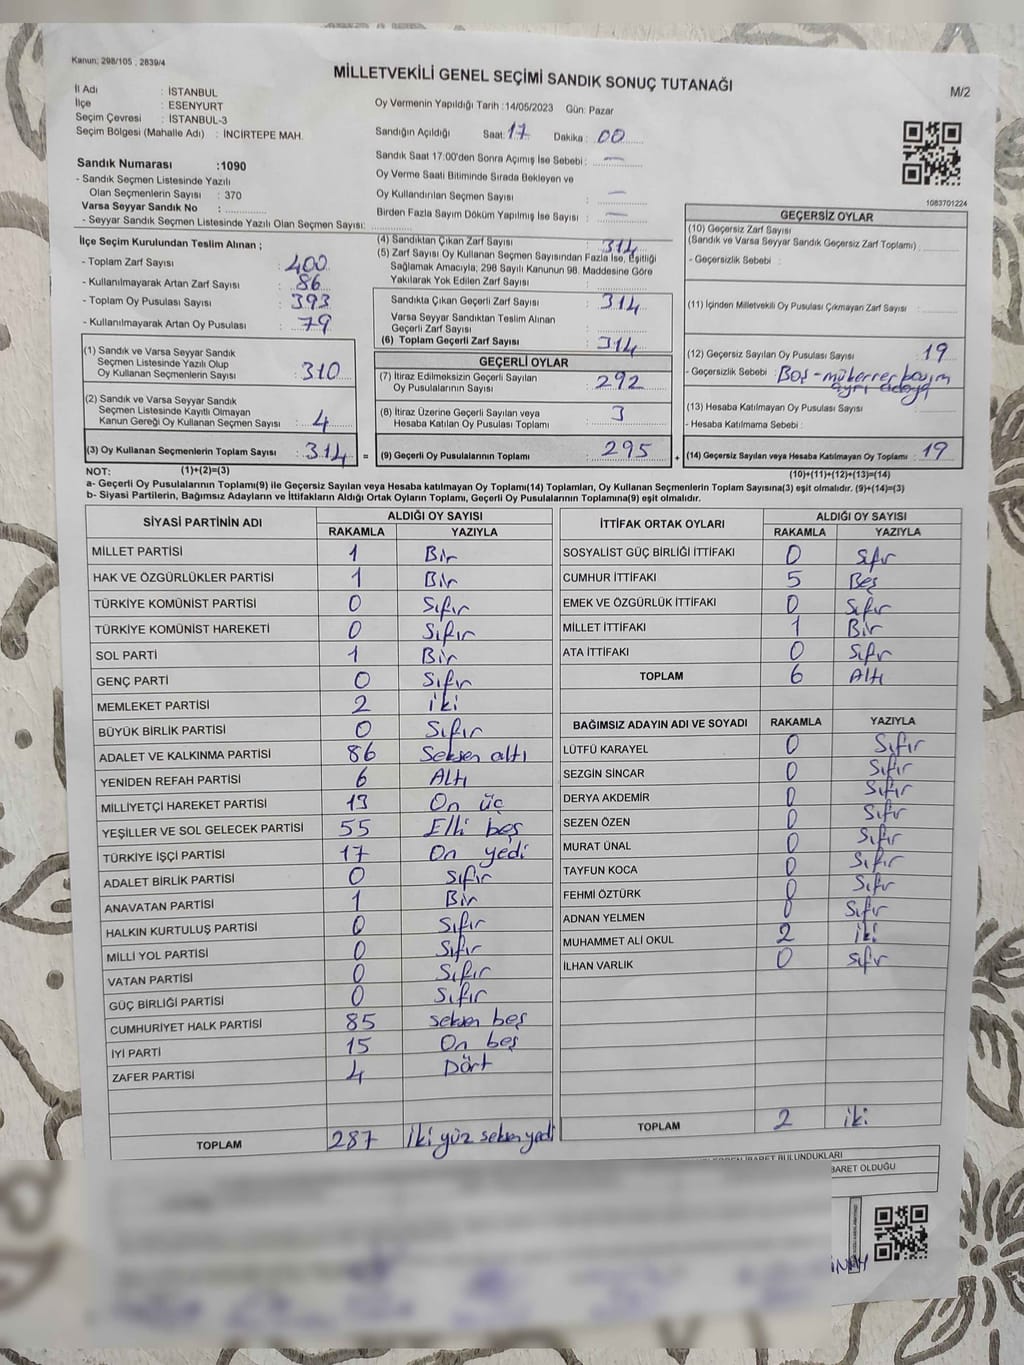 Kanun: 298/105 , 2839/4
MİLLETVEKİLİ GENEL SEÇİMİ SANDIK SONUÇ TUTANAĞI
M/2
İl Adı : İSTANBUL
İlçe : ESENYURT
Seçim Çevresi : İSTANBUL-3
Seçim Bölgesi (Mahalle Adı) : İNCİRTEPE MAH.
Oy Vermenin Yapıldığı Tarih :14/05/2023 Gün: Pazar
Sandığın Açıldığı Saat: 17 Dakika : 00
Sandık Saat 17:00'den Sonra Açımış İse Sebebi : —
Oy Verme Saati Bitiminde Sırada Bekleyen ve
Oy Kullandırılan Seçmen Sayısı : —
Birden Fazla Sayım Döküm Yapılmış İse Sayısı : —
1083701224
Sandık Numarası :1090
- Sandık Seçmen Listesinde Yazılı
Olan Seçmenlerin Sayısı : 370
Varsa Seyyar Sandık No :
- Seyyar Sandık Seçmen Listesinde Yazılı Olan Seçmen Sayısı:
İlçe Seçim Kurulundan Teslim Alınan ;
- Toplam Zarf Sayısı : 400
- Kullanılmayarak Artan Zarf Sayısı : 86
- Toplam Oy Pusulası Sayısı : 393
- Kullanılmayarak Artan Oy Pusulası : 79
(1) Sandık ve Varsa Seyyar Sandık
Seçmen Listesinde Yazılı Olup
Oy Kullanan Seçmenlerin Sayısı : 310
(2) Sandık ve Varsa Seyyar Sandık
Seçmen Listesinde Kayıtlı Olmayan
Kanun Gereği Oy Kullanan Seçmen Sayısı : 4
(3) Oy Kullanan Seçmenlerin Toplam Sayısı : 314 =
(4) Sandıktan Çıkan Zarf Sayısı : 314
(5) Zarf Sayısı Oy Kullanan Seçmen Sayısından Fazla İse, Eşitliği
Sağlamak Amacıyla; 298 Sayılı Kanunun 98. Maddesine Göre
Yakılarak Yok Edilen Zarf Sayısı :
Sandıkta Çıkan Geçerli Zarf Sayısı : 314
Varsa Seyyar Sandıktan Teslim Alınan
Geçerli Zarf Sayısı :
(6) Toplam Geçerli Zarf Sayısı : 314
GEÇERLİ OYLAR
(7) İtiraz Edilmeksizin Geçerli Sayılan
Oy Pusulalarının Sayısı : 292
(8) İtiraz Üzerine Geçerli Sayılan veya
Hesaba Katılan Oy Pusulası Toplamı : 3
(9) Geçerli Oy Pusulalarının Toplamı : 295 +
GEÇERSİZ OYLAR
(10) Geçersiz Zarf Sayısı
(Sandık ve Varsa Seyyar Sandık Geçersiz Zarf Toplamı) :
- Geçersizlik Sebebi :
(11) İçinden Milletvekili Oy Pusulası Çıkmayan Zarf Sayısı :
(12) Geçersiz Sayılan Oy Pusulası Sayısı : 19
- Geçersizlik Sebebi : Boş - mükerrer basım
ayrı adaya
(13) Hesaba Katılmayan Oy Pusulası Sayısı :
- Hesaba Katılmama Sebebi :
(14) Geçersiz Sayılan veya Hesaba Katılmayan Oy Toplamı : 19
NOT: (1)+(2)=(3)
(10)+(11)+(12)+(13)=(14)
a- Geçerli Oy Pusulalarının Toplamı(9) ile Geçersiz Sayılan veya Hesaba katılmayan Oy Toplamı(14) Toplamları, Oy Kullanan Seçmenlerin Toplam Sayısına(3) eşit olmalıdır. (9)+(14)=(3)
b- Siyasi Partilerin, Bağımsız Adayların ve İttifakların Aldığı Ortak Oyların Toplamı, Geçerli Oy Pusulalarının Toplamına(9) eşit olmalıdır.
SİYASİ PARTİNİN ADI ALDIĞI OY SAYISI
RAKAMLA YAZIYLA
MİLLET PARTİSİ 1 Bir
HAK VE ÖZGÜRLÜKLER PARTİSİ 1 Bir
TÜRKİYE KOMÜNİST PARTİSİ 0 Sıfır
TÜRKİYE KOMÜNİST HAREKETİ 0 Sıfır
SOL PARTİ 1 Bir
GENÇ PARTİ 0 Sıfır
MEMLEKET PARTİSİ 2 iki
BÜYÜK BİRLİK PARTİSİ 0 Sıfır
ADALET VE KALKINMA PARTİSİ 86 Seksen altı
YENİDEN REFAH PARTİSİ 6 Altı
MİLLİYETÇİ HAREKET PARTİSİ 13 On üç
YEŞİLLER VE SOL GELECEK PARTİSİ 55 Elli beş
TÜRKİYE İŞÇİ PARTİSİ 17 On yedi
ADALET BİRLİK PARTİSİ 0 Sıfır
ANAVATAN PARTİSİ 1 Bir
HALKIN KURTULUŞ PARTİSİ 0 Sıfır
MİLLİ YOL PARTİSİ 0 Sıfır
VATAN PARTİSİ 0 Sıfır
GÜÇ BİRLİĞİ PARTİSİ 0 Sıfır
CUMHURİYET HALK PARTİSİ 85 seksen beş
İYİ PARTİ 15 On beş
ZAFER PARTİSİ 4 Dört
TOPLAM 287 iki yüz seksen yedi
İTTİFAK ORTAK OYLARI ALDIĞI OY SAYISI
RAKAMLA YAZIYLA
SOSYALİST GÜÇ BİRLİĞİ İTTİFAKI 0 Sıfır
CUMHUR İTTİFAKI 5 Beş
EMEK VE ÖZGÜRLÜK İTTİFAKI 0 Sıfır
MİLLET İTTİFAKI 1 Bir
ATA İTTİFAKI 0 Sıfır
TOPLAM 6 Altı
BAĞIMSIZ ADAYIN ADI VE SOYADI RAKAMLA YAZIYLA
LÜTFÜ KARAYEL 0 Sıfır
SEZGİN SİNCAR 0 Sıfır
DERYA AKDEMİR 0 Sıfır
SEZEN ÖZEN 0 Sıfır
MURAT ÜNAL 0 Sıfır
TAYFUN KOCA 0 Sıfır
FEHMİ ÖZTÜRK 0 Sıfır
ADNAN YELMEN 0 Sıfır
MUHAMMET ALİ OKUL 2 iki
İLHAN VARLIK 0 Sıfır
TOPLAM 2 iki
İBARET BULUNDUKLARI
BARET OLDUĞU